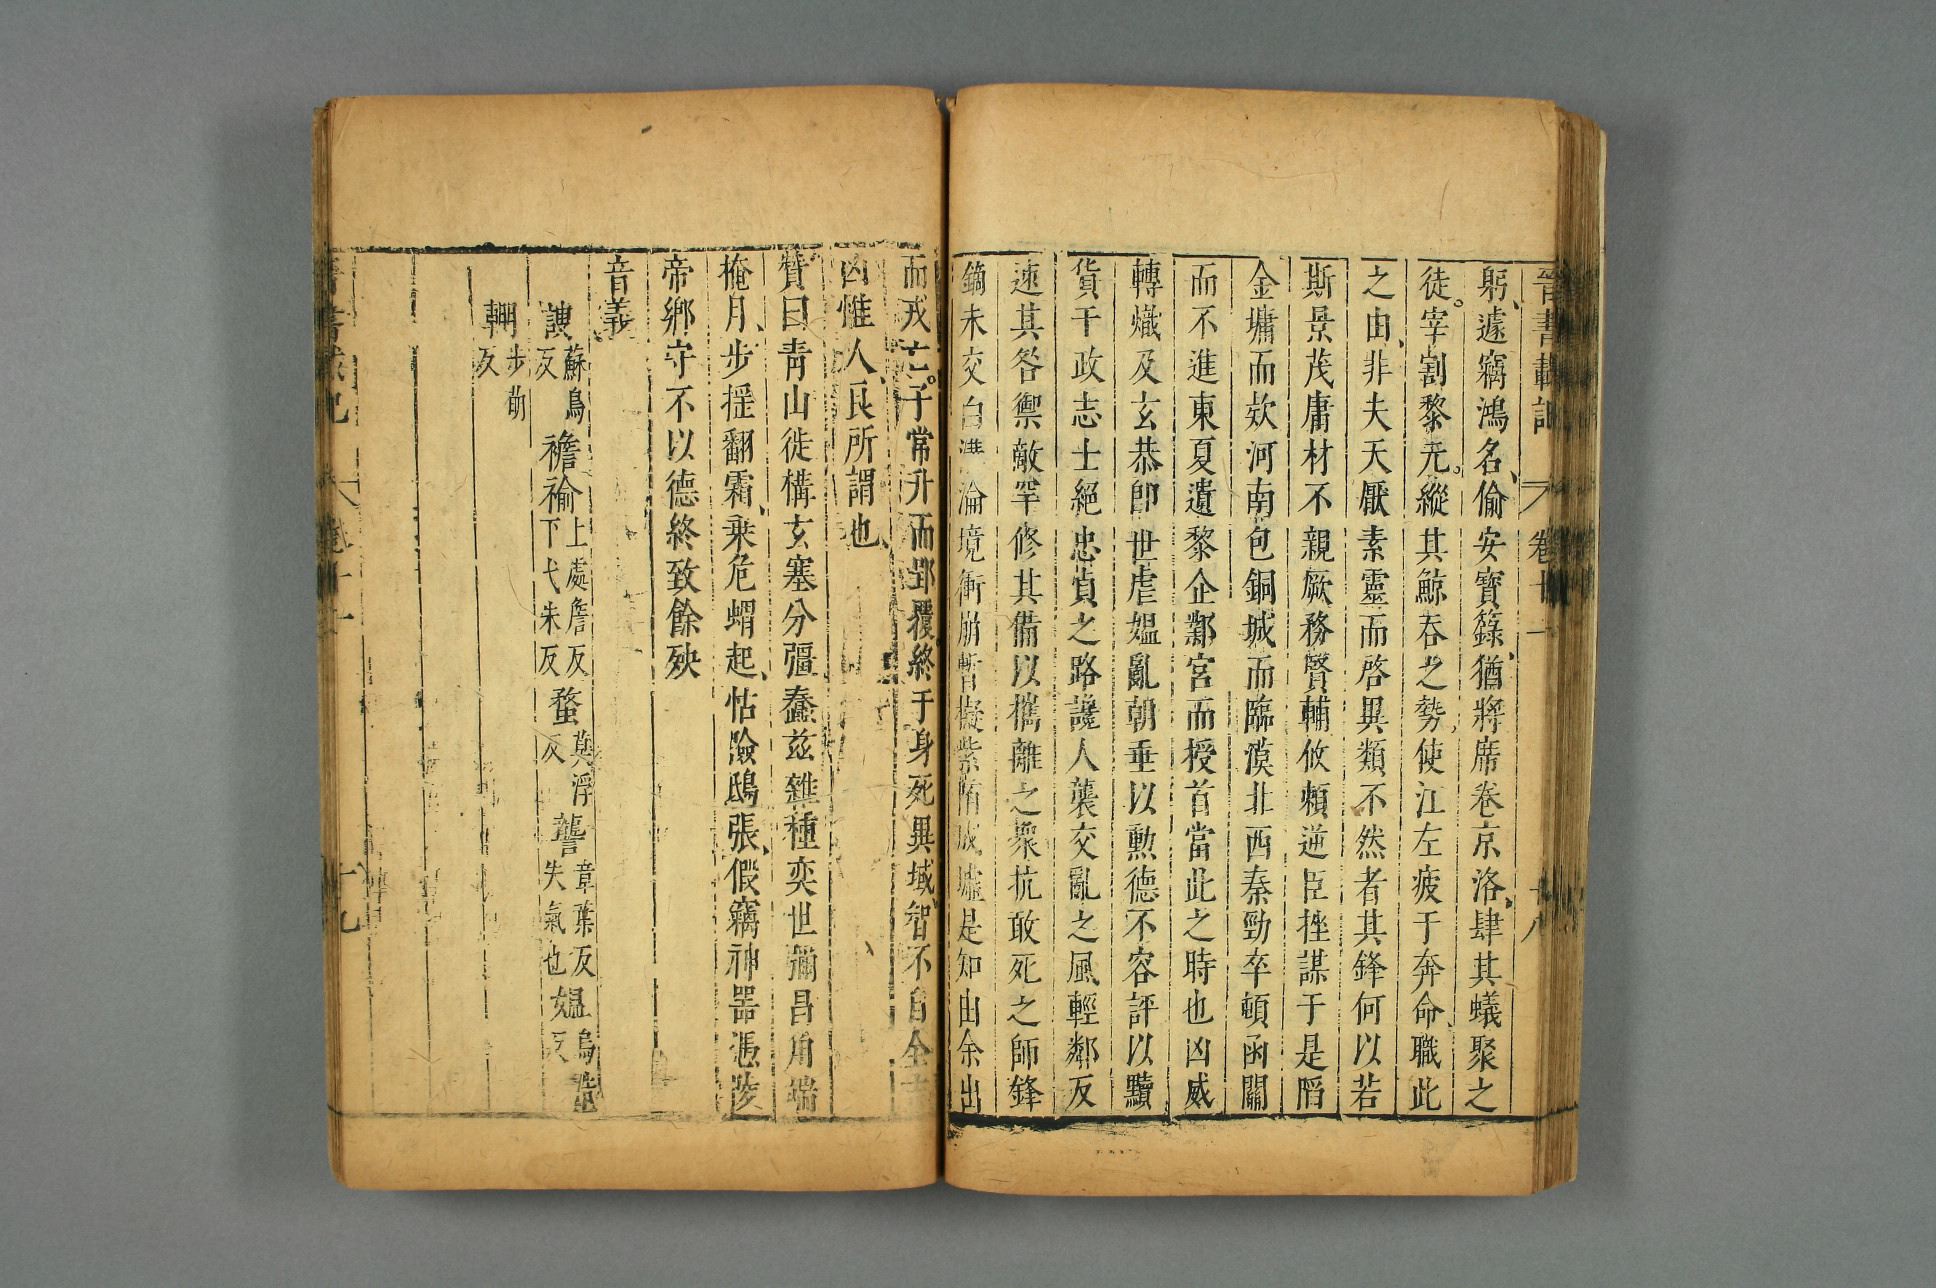 晉書載記 卷十一 十八
躬、遽竊鴻名、偷安寶籙、猶將席卷京洛、肆其蟻聚之
徒。宰割黎元。縱其鯨吞之勢。使江左疲于奔命、職此
之由、非夫天厭素靈而啓異類不然者其鋒何以若
斯景茂庸材不親厥務賢輔攸賴逆臣挫謀于是陷
金墉而欵河南包銅城而臨漠北西秦勁卒頓函關
而不進東夏遺黎企鄴宮而授首當此之時也凶威
轉熾及玄恭卽世虐媼亂朝垂以勲德不容評以黷
貨干政志士絕忠貞之路讒人襲交亂之風輕鄰反
速其咎禦敵罕修其備以攜離之衆抗敢死之師鋒
鏑未交白溝淪境衝崩暫擬紫陌成墟是知由余出
而戎亡。子常升而郢覆、終于身死異域智不自全吉
凶惟人、良所謂也、
贊曰青山徙構玄塞分彊蠢兹雜種奕世彌昌角端
掩月、步摇翻霜、乗危蝟起、怙險鴟張、假竊神器憑陵
帝鄉守不以德終致餘殃
音義
謏蘇鳥反 襜褕上處詹反下弋朱反 蝥莫浮反 讋章葉反失氣也 媼烏浩反
輣步萠反
晉書載記 卷十一 十九